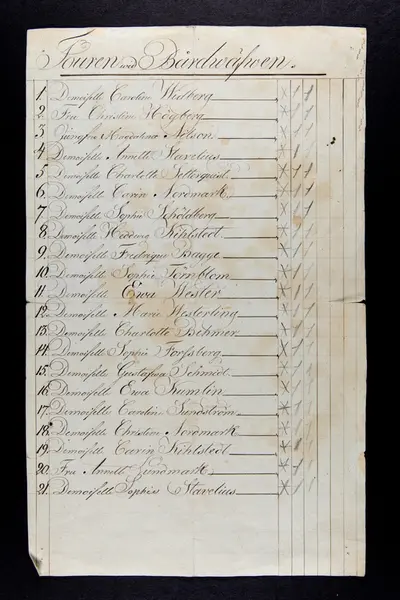 Touren wid Bårdwäfven.
1. Demoiselle Caroline Widberg
2. Fru Christine Högberg
3. Jungfru Magdalena Nelson
4. Demoiselle Annette Stavelius
5. Demoiselle Charlotte Setterquist
6. Demoiselle Carin Nordmark
7. Demoiselle Sophie Schöldberg
8. Demoiselle Hedewig Kihlstedt
9. Demoiselle Fredrique Bagge
10. Demoiselle Sophie Törnblom
11. Demoiselle Ewa Wester
12. Demoiselle Marie Westerling
13. Demoiselle Charlotte Böhmer
14. Demoiselle Sophie Forssberg
15. Demoiselle Gustafva Schmidt
16. Demoiselle Ewa Kumlin
17. Demoiselle Caroline Sundström
18. Demoiselle Christine Nordmark
19. Demoiselle Carin Kihlstedt
20. Fru Annette Lundmark
21. Demoiselle Sophie Stavelius